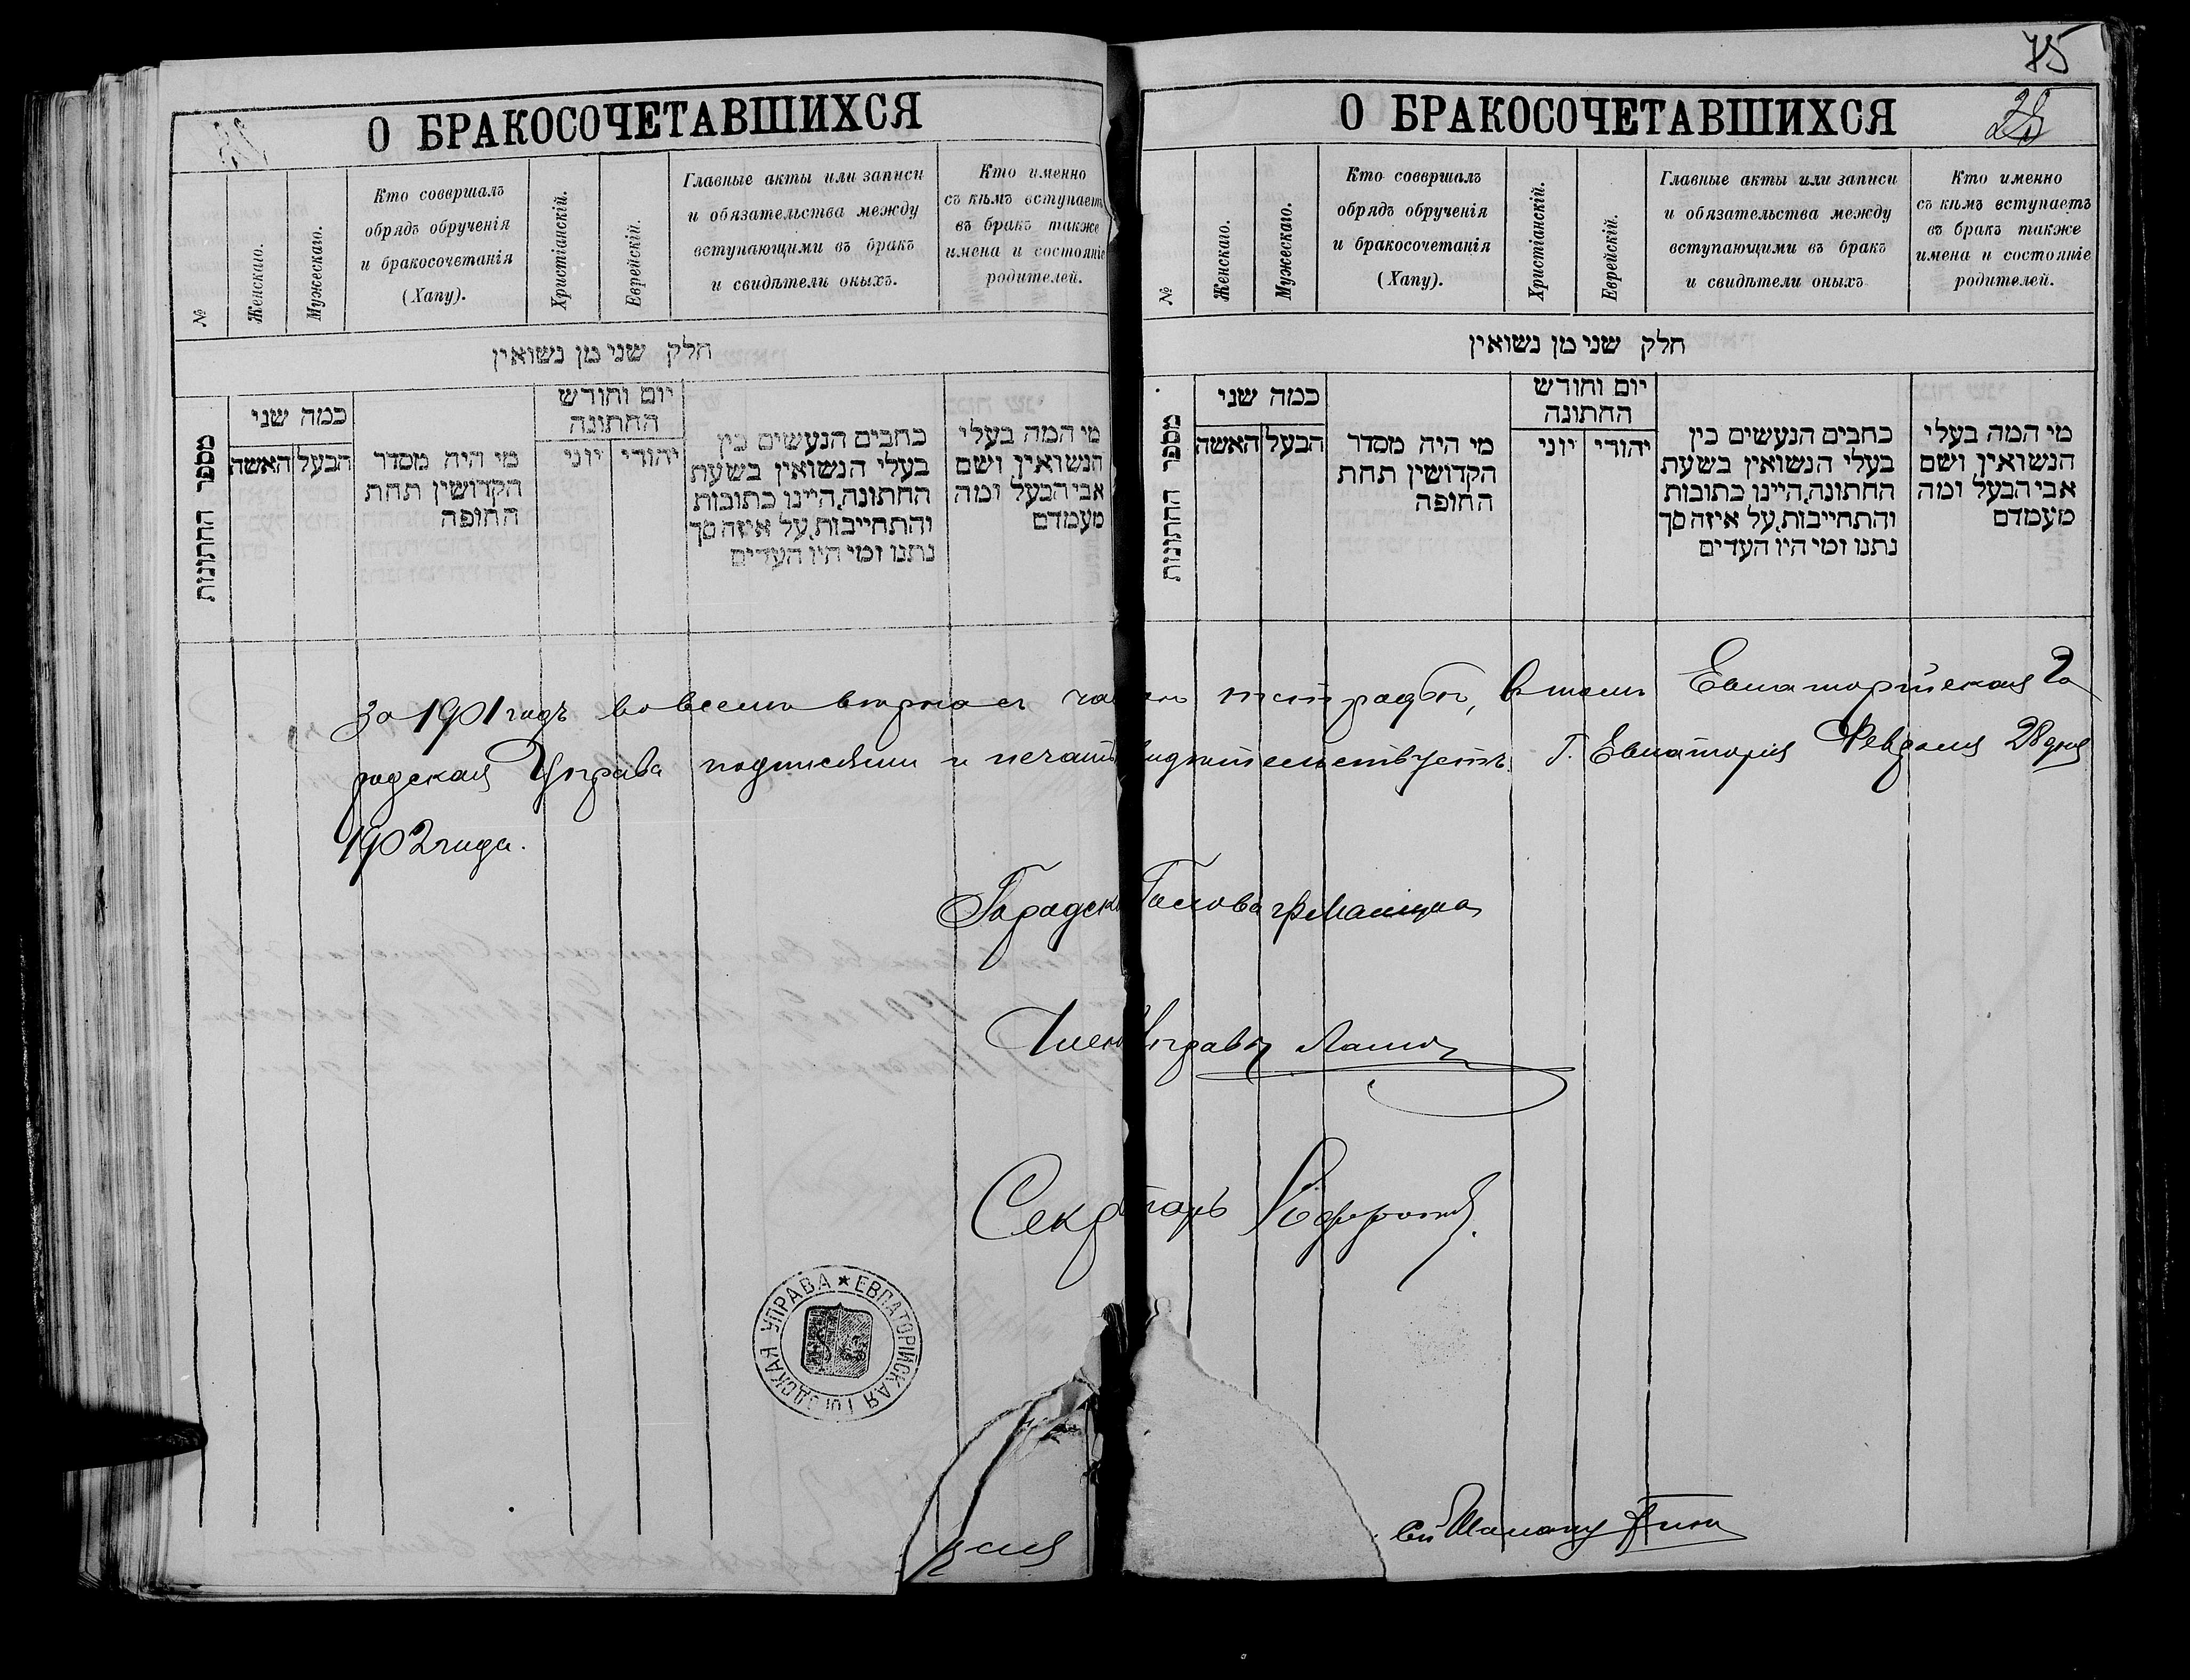 75
28
О БРАКОСОЧЕТАВШИХСЯ
№
Женскаго.
Мужескаго.
Кто совершалъ
обрядъ обрученія
и бракосочетанія
(Хапу).
Христіанскій.
Еврейскій.
Главные акты или записи
и обязательства между
вступающими въ бракъ
и свидѣтели оныхъ.
Кто именно
съ кѣмъ вступаетъ
въ бракъ также
имена и состояніе
родителей.
חלק שני מן נשואין
מספר החתונות
כמה שני
האשה
הבעל
מי היה מסדר
הקדושין תחת
החופה
יום וחודש
החתונה
יוני
יהודי
כתבים הנעשים בין
בעלי הנשואין בשעת
החתונה,היינו כתובות
והתחייבות,על איזה סך
נתנו ומי היו העדים
מי המה בעלי
הנשואין ושם
אבי הבעל ומה
מעמדם
О БРАКОСОЧЕТАВШИХСЯ
№
Женскаго.
Мужескаго.
Кто совершалъ
обрядъ обрученія
и бракосочетанія
(Хапу).
Христіанскій.
Еврейскій.
Главные акты или записи
и обязательства между
вступающими въ бракъ
и свидѣтели оныхъ
Кто именно
съ кѣмъ вступаетъ
въ бракъ также
имена и состояніе
родителей.
חלק שני מן נשואין
מספר החתונות
כמה שני
האשה
הבעל
מי היה מסדר
הקדושין תחת
החופה
יום וחודש
החתונה
יוני
יהודי
כתבים הנעשים בין
בעלי הנשואין בשעת
החתונה,היינו כתובות
והתחייבות,על איזה סך
נתנו ומי היו העדים
מי המה בעלי
הנשואין ושם
אבי הבעל ומה
מעמדם
За 1901 годъ во всемъ вѣрна съ тетрадью, въ томъ Евпаторійская Го
родская Управа подписями и печатью свидѣтельствуетъ. Г. Евпаторія Февраля 28 дня
1902 года.
Городской Голова
Членъ Управы
Секретарь
ЕВПАТОРІЙСКАЯ ГОРОДСКАЯ УПРАВА